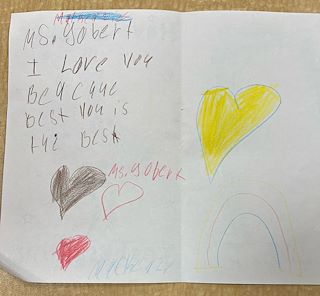 Ms. Yobert
I Love You
Becaue
best You is
the Best
Ms. Yobert